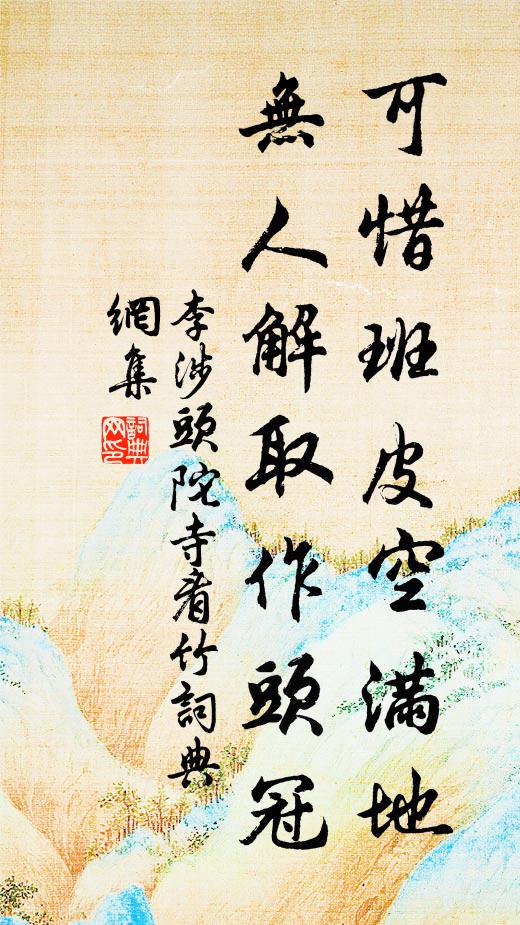 可惜班皮空滿地
無人解取作頭冠
李涉頭陀寺看竹詞典
網集
詞典
網印